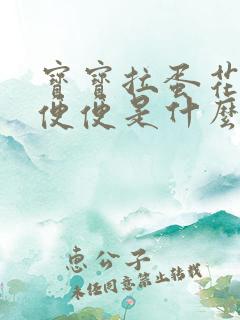 寶寶拉蛋花
便便是什麼
惠公子
未经同意禁止转载